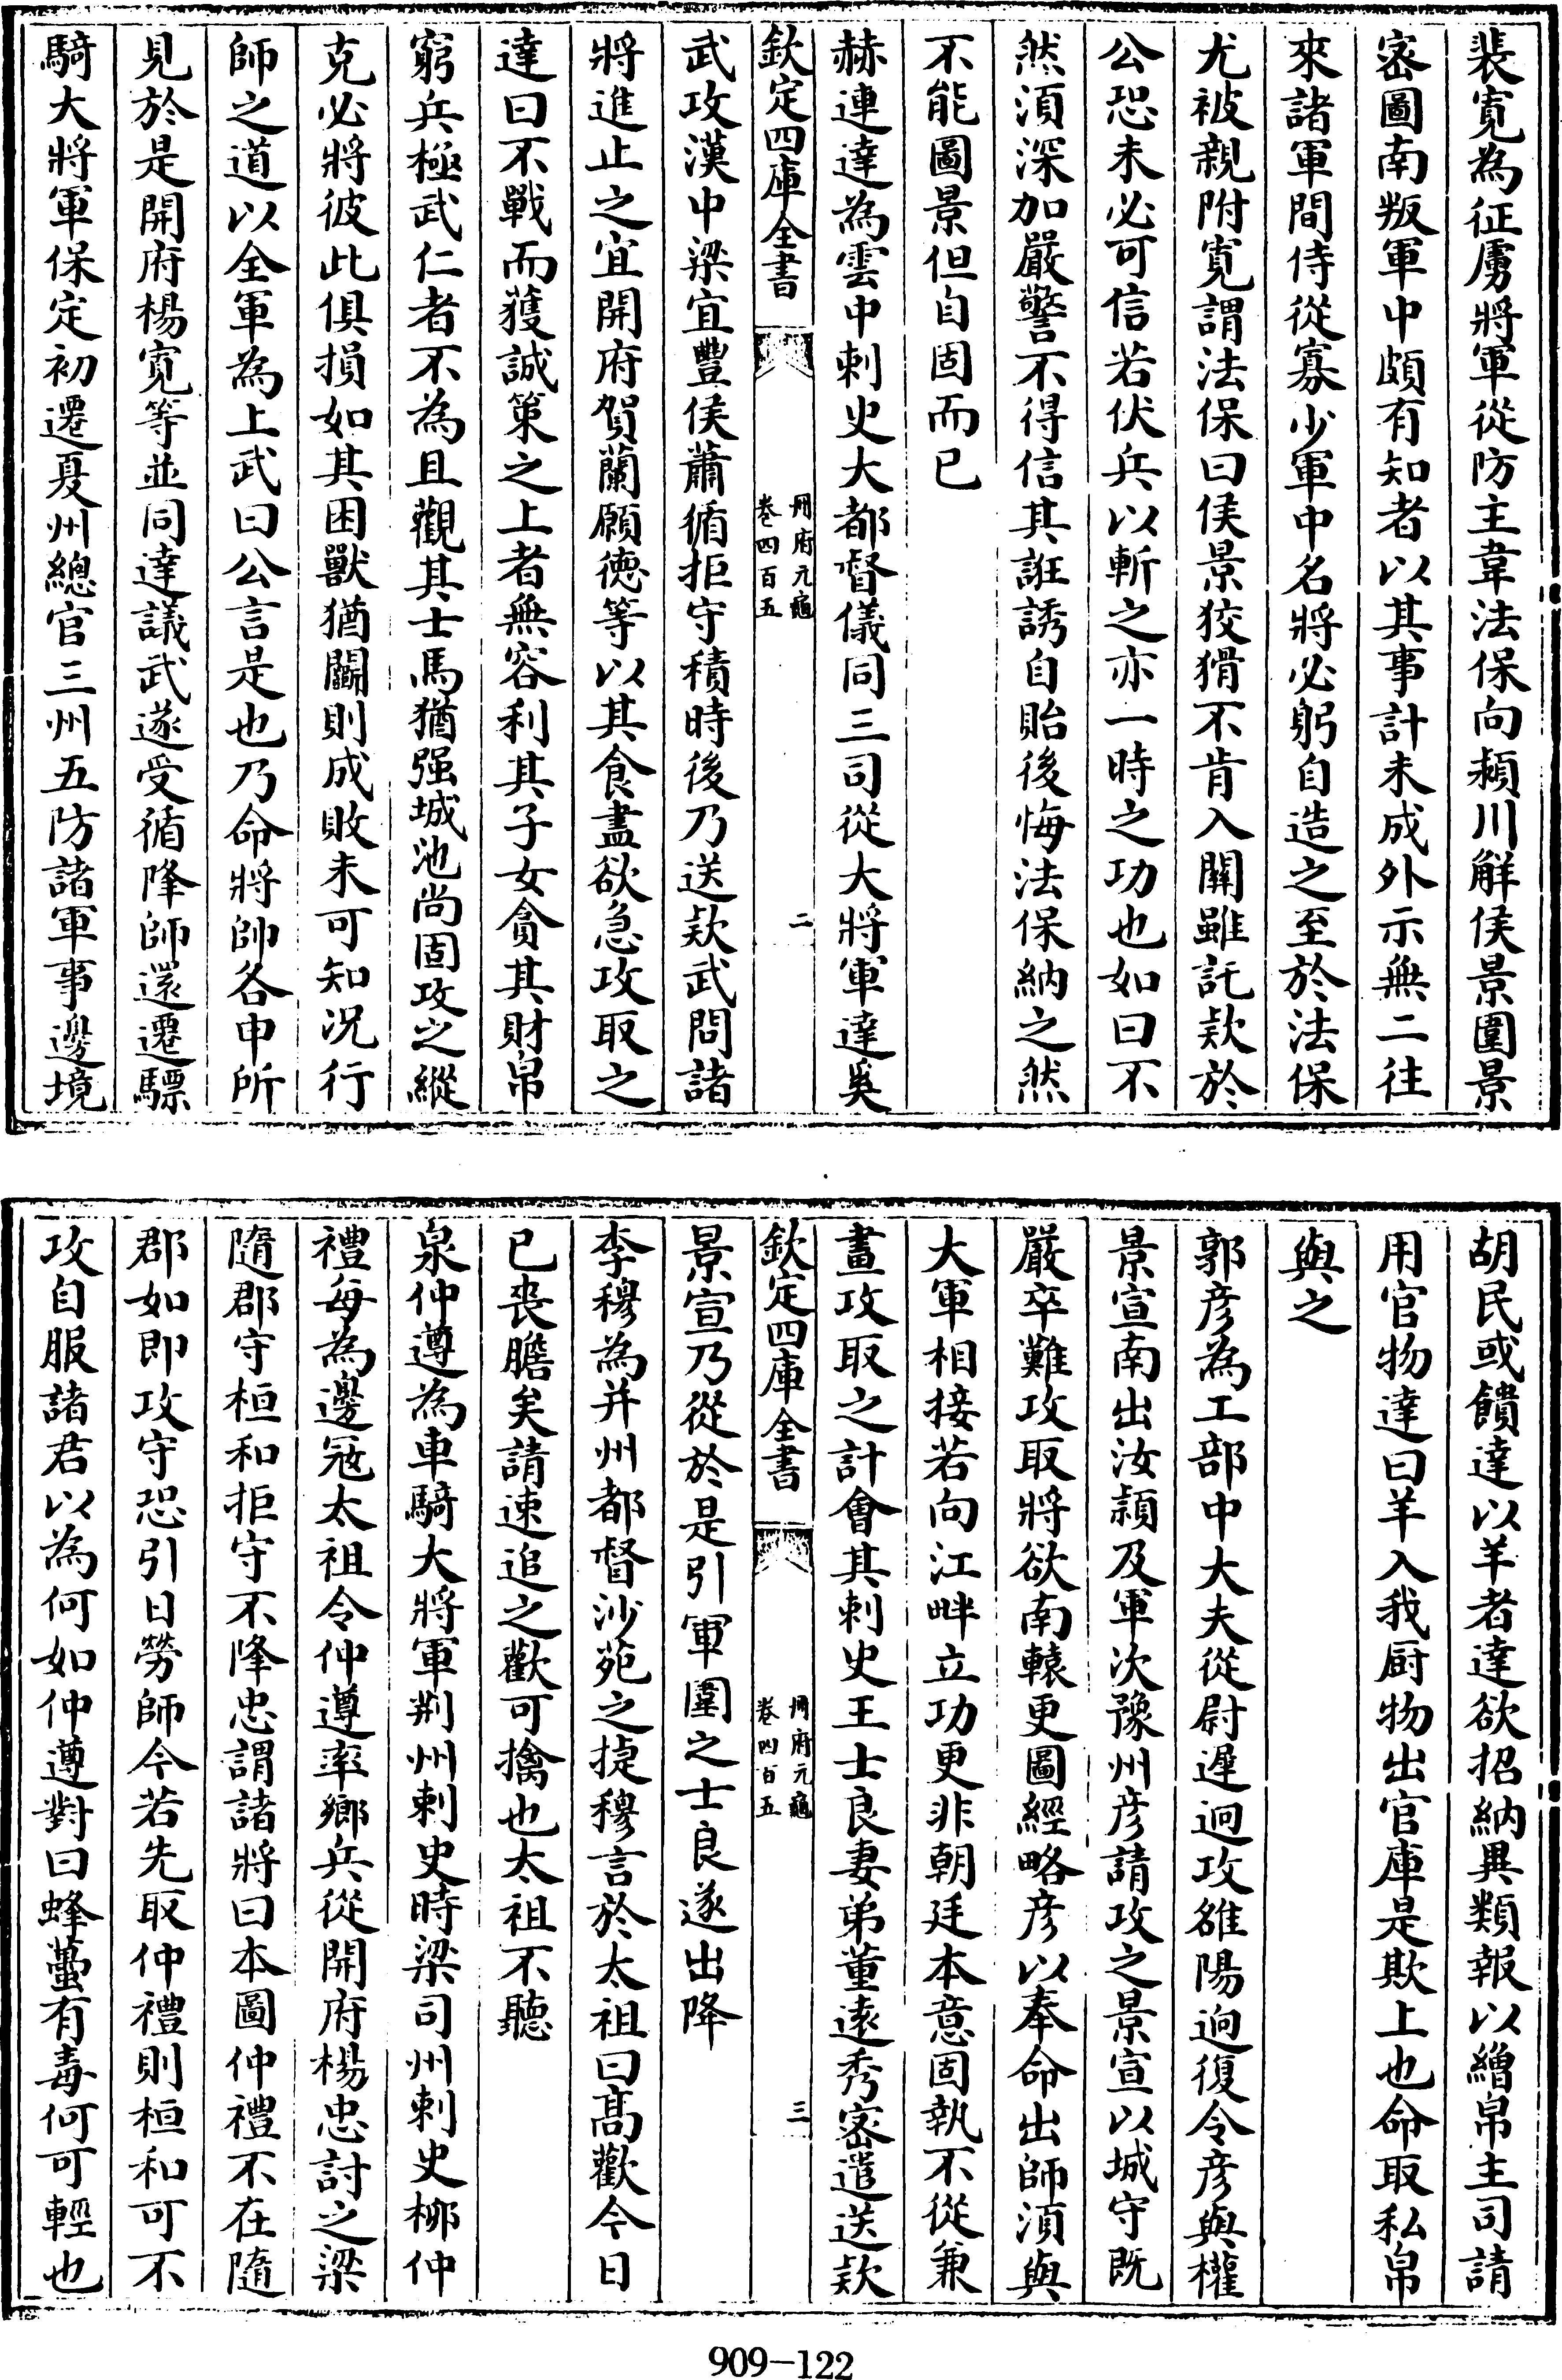 裴寛為征虜將軍從防主韋法保向潁川解侯景圍景
宻圖南叛軍中頗有知者以其事計未成外示無二往
來諸軍間侍從寡少軍中名將必躬自造之至於法保
尤被親附寛謂法保曰侯景狡猾不肯入關雖託欵於
公恐未必可信若伏兵以斬之亦一時之功也如曰不
然湏深加嚴警不得信其誑誘自貽後悔法保納之然
不能圖景但自固而已
赫連達為雲中刺史大都督儀同三司從大將軍達奚
欽定四庫全書
冊府元龜
卷四百五
二
武攻漢中梁宜豐侯蕭循拒守積時後乃送欵武問諸
將進止之宜開府賀蘭願徳等以其食盡欲急攻取之
達曰不戰而獲誠策之上者無容利其子女貪其財帛
窮兵極武仁者不為且觀其士馬猶强城池尚固攻之縱
克必將彼此俱損如其困獸猶鬭則成敗未可知况行
師之道以全軍為上武曰公言是也乃命將帥各申所
見於是開府楊寛等並同達議武遂受循降師還遷驃
騎大將軍保定初遷夏州總官三州五防諸軍事邊境
胡民或饋達以羊者達欲招納異類報以繒帛主司請
用官物達曰羊入我厨物出官庫是欺上也命取私帛
與之
郭彦為工部中大夫從尉遲迥攻雒陽迥復令彦與權
景宣南出汝潁及軍次豫州彦請攻之景宣以城守既
嚴卒難攻取將欲南轅更圖經略彦以奉命出師湏與
大軍相接若向江畔立功更非朝廷本意固執不從兼
畫攻取之計會其刺史王士良妻弟董遠秀宻遣送欵
欽定四庫全書
冊府元龜
卷四百五
三
景宣乃從於是引軍圍之士良遂出降
李穆為并州都督沙苑之捷穆言於太祖曰髙歡今日
已喪膽矣請速追之歡可擒也太祖不聽
泉仲遵為車騎大將軍荆州刺史時梁司州刺史柳仲
禮每為邊冦太祖令仲遵率鄉兵從開府楊忠討之梁
隨郡守桓和拒守不降忠謂諸將曰本圖仲禮不在隨
郡如即攻守恐引日勞師今若先取仲禮則桓和可不
攻自服諸君以為何如仲遵對曰蜂蠆有毒何可輕也
909-122